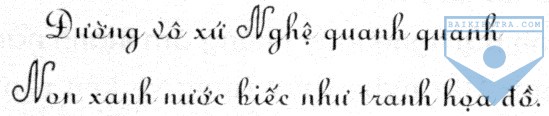 Đường vô xứ Nghệ quanh quanh
Non xanh nước biếc như tranh họa đồ.
BAIKIEMTRA.COM